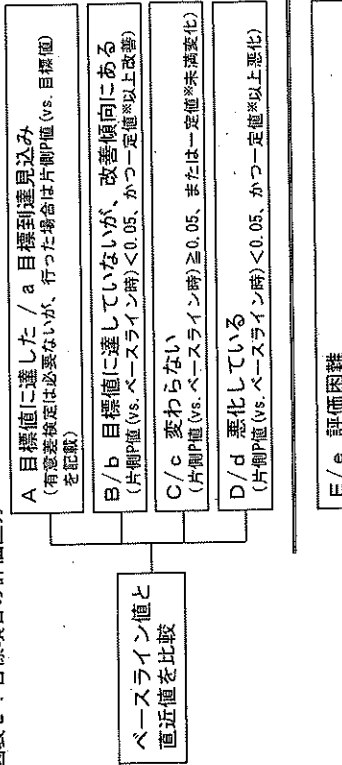 ベースライン値と
直近値を比較
A 目標値に達した / a 目標到達見込み
(有意差検定は必要ないが、行った場合は片側P値(vs. 目標値)
を記載)
B/b 目標値に達していないが、改善傾向にある
(片側P値(vs. ベースライン時)<0.05、かつ一定値※以上改善)
C/c 変わらない
(片側P値(vs. ベースライン時)≧0.05、または一定値※未満変化)
D/d 悪化している
(片側P値(vs. ベースライン時)<0.05、かつ一定値※以上悪化)
E/e 評価困難